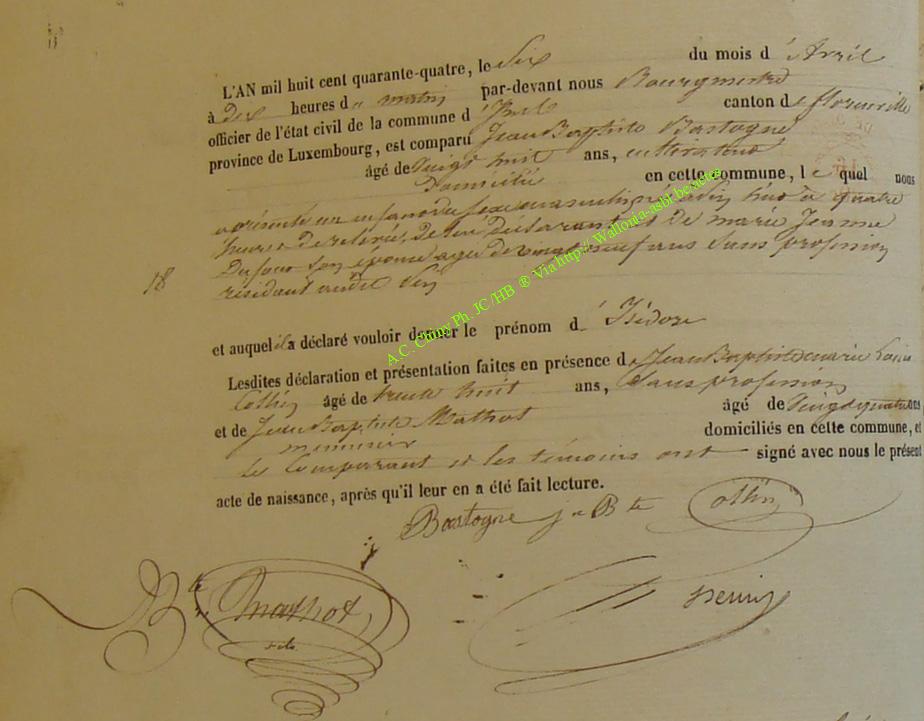 L'AN mil huit cent quarante-quatre, le Six du mois d' Avril
à Dix heures du matin par-devant nous Bourgmestre
officier de l'état civil de la commune d' canton de florenville
province de Luxembourg, est comparu Jean Baptiste Bastogne
âgé de vingt huit ans, cultivateur
Domicilié en cette commune, le quel nous
a présenté un enfant du sexe masculin né hier à quatre
heures de relevé, de lui déclarant et de marie Jeanne
Dufour son épouse agée de vingt neuf ans Sans profession
18
résidant audit
et auquel il a déclaré vouloir donner le prénom d' Isidore
Lesdites déclaration et présentation faites en présence de Jean Baptiste marie Louis
Collin âgé de trente huit ans, Sans profession
et de Jean Baptiste Mathot âgé de vingt quatre ans
menuisier domiciliés en cette commune, et
Le Comparant et les témoins ont signé avec nous le présent
acte de naissance, après qu'il leur en a été fait lecture.
Bastogne j n B te Collin
B te Mathot
fils
A.C. Chiny Ph. JC/HB ® Via http://Wallonia-asbl.be/actes